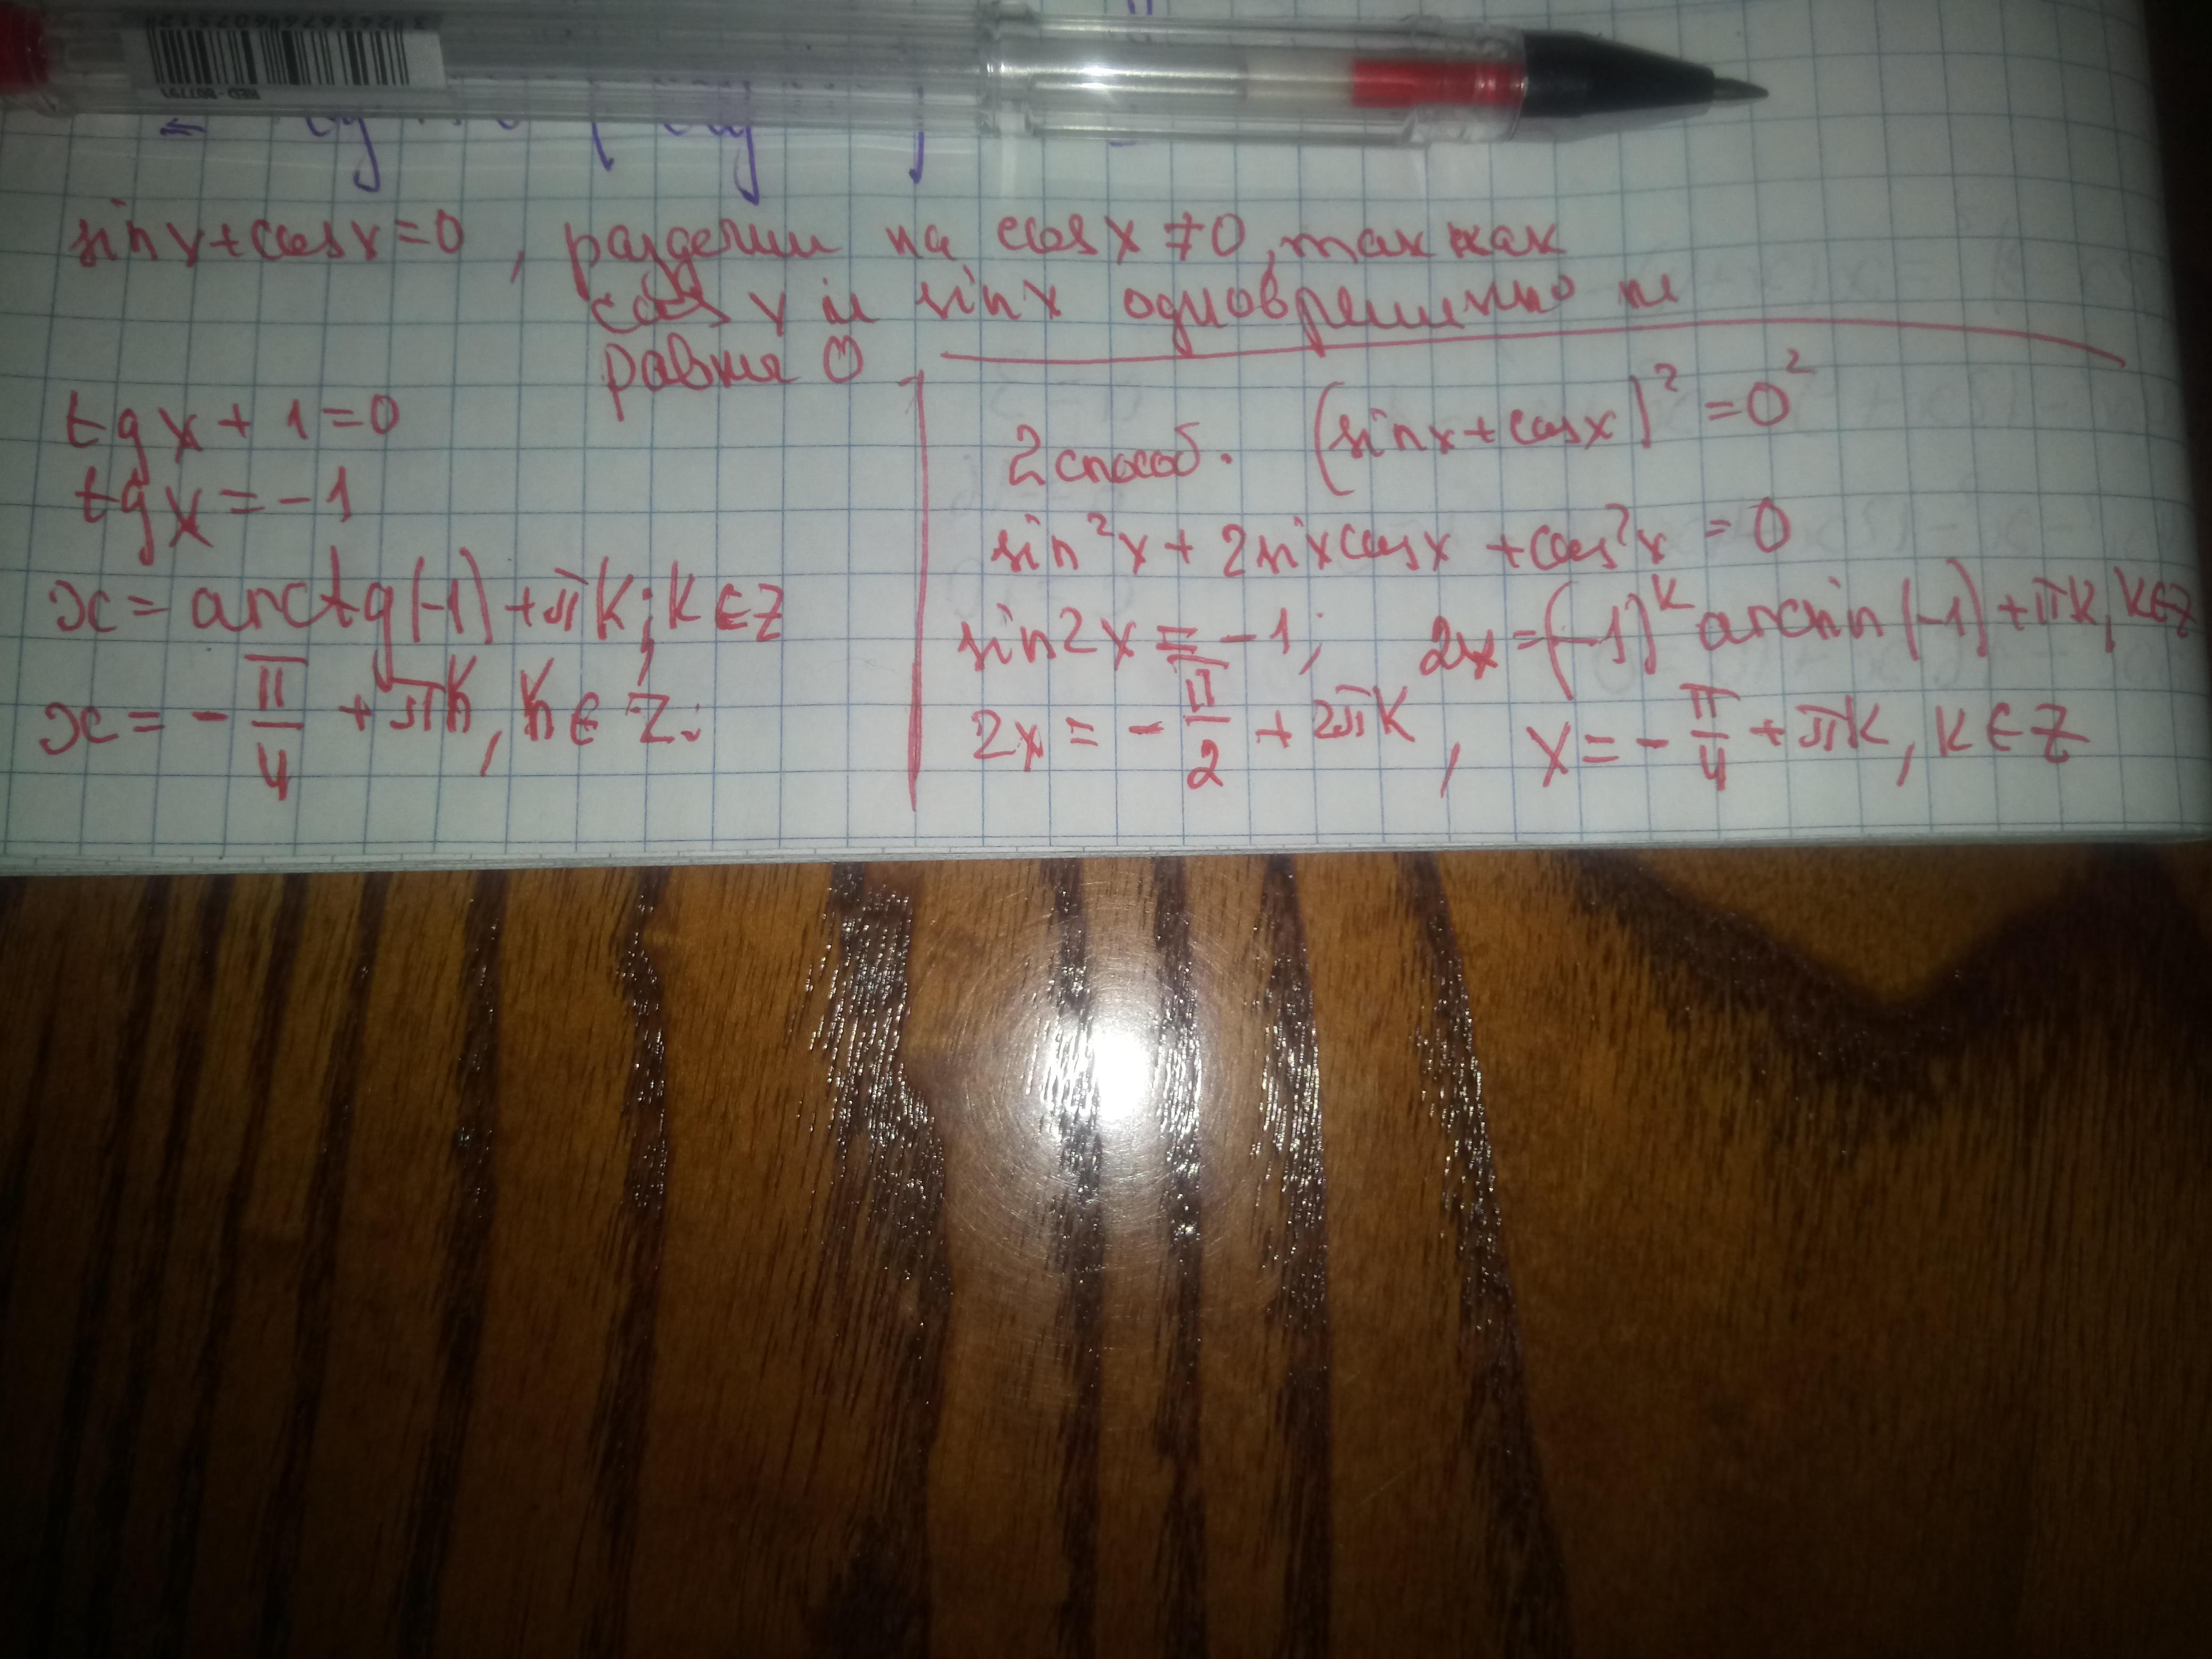 sin x + cos x = 0, разделим на cos x ≠ 0, так как
cos x и sin x одновременно не
равны 0
tg x + 1 = 0
tg x = -1
x = arctg(-1) + πk; k ∈ Z
x = - π/4 + πk, k ∈ Z.
2 способ. (sin x + cos x)² = 0²
sin²x + 2 six cos x + cos²x = 0
sin 2x = -1; 2x = (-1)^k arcsin(-1) + πk, k ∈ Z
2x = - π/2 + 2πk, x = - π/4 + πk, k ∈ Z